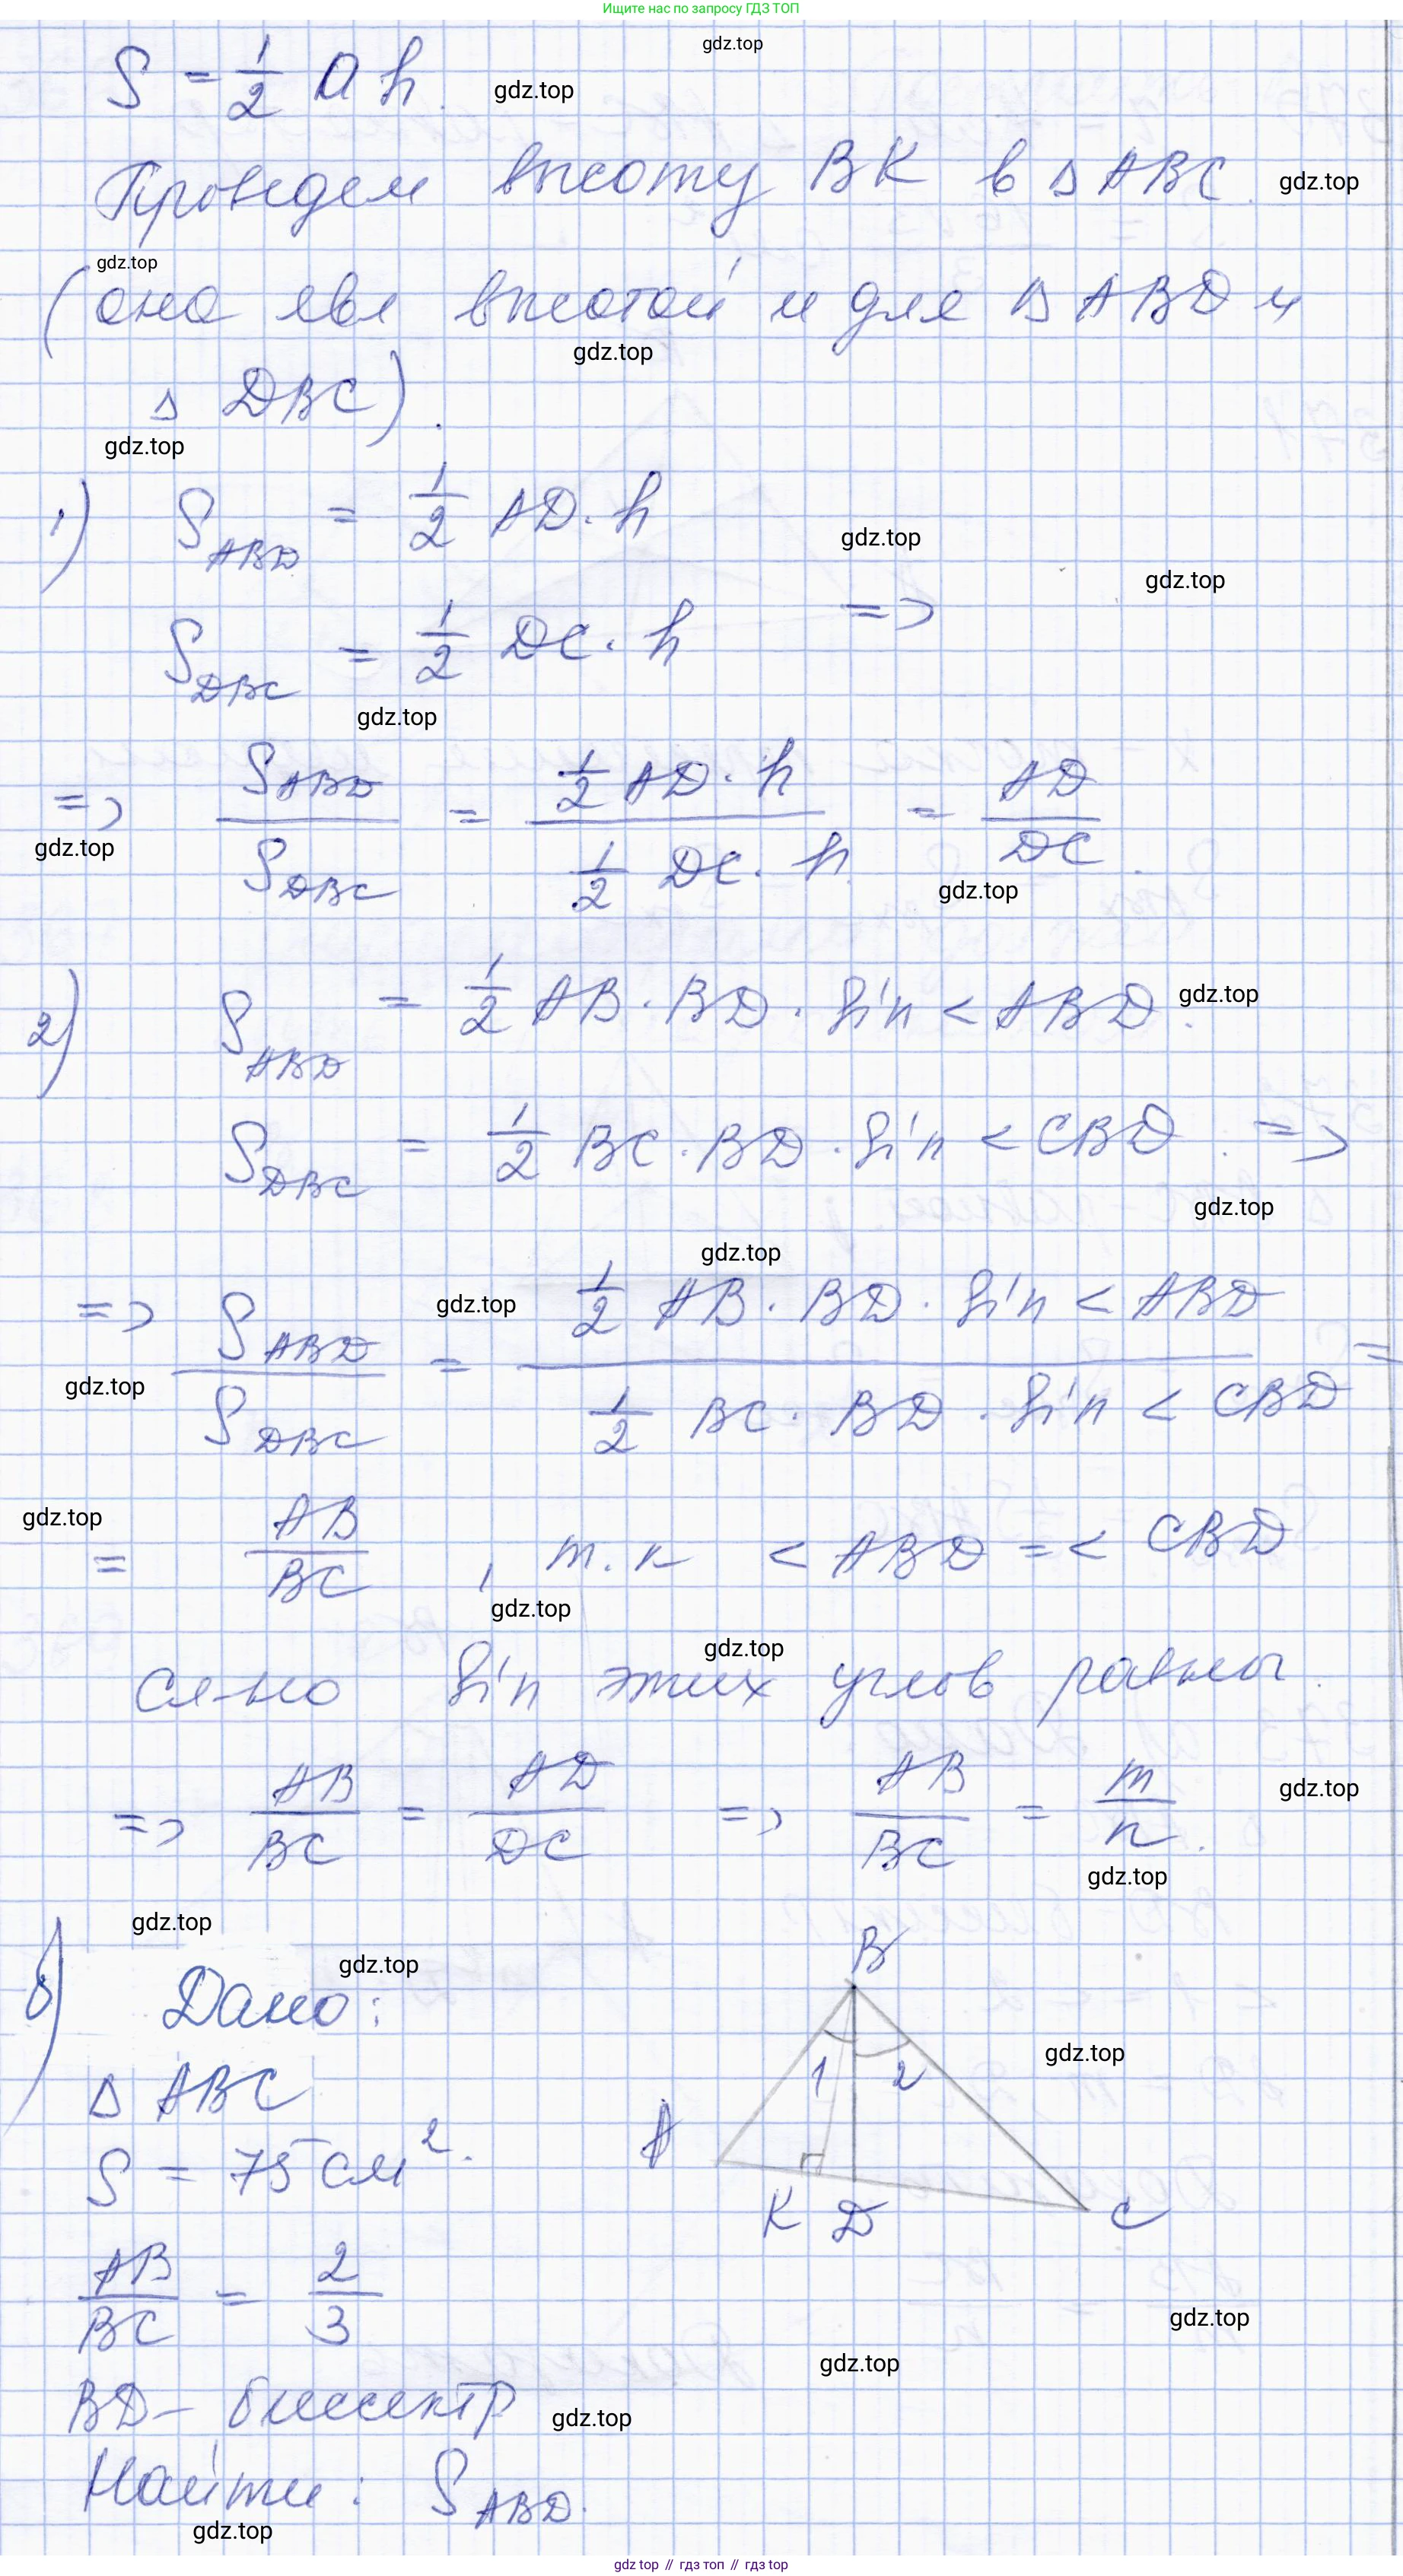 Ищите нас по запросу ГДЗ ТОП
gdz.top
S = 1/2 a h. gdz.top
Проведем высоту BK в △ ABC. gdz.top
gdz.top
(она явл высотой и для △ ABD и
gdz.top
△ DBC).
gdz.top
1) S_ABD = 1/2 AD · h
gdz.top
gdz.top
S_DBC = 1/2 DC · h =>
gdz.top
=> S_ABD / S_DBC = (1/2 AD · h) / (1/2 DC · h) = AD / DC.
gdz.top
gdz.top
2) S_ABD = 1/2 AB · BD · sin < ABD. gdz.top
S_DBC = 1/2 BC · BD · sin < CBD. =>
gdz.top
gdz.top
gdz.top
=> S_ABD / S_DBC = (1/2 AB · BD · sin < ABD) / (1/2 BC · BD · sin < CBD) =
gdz.top
gdz.top
= AB / BC, т.к < ABD = < CBD
gdz.top
gdz.top
сл-но sin этих углов равны.
=> AB / BC = AD / DC => AB / BC = m / n.
gdz.top
gdz.top
gdz.top
B
gdz.top
б) Дано:
gdz.top
1 2
△ ABC
A
S = 75 см².
K D C
AB / BC = 2 / 3
gdz.top
gdz.top
BD – биссектр
gdz.top
Найти: S_ABD.
gdz.top
gdz top // гдз топ // гдз top